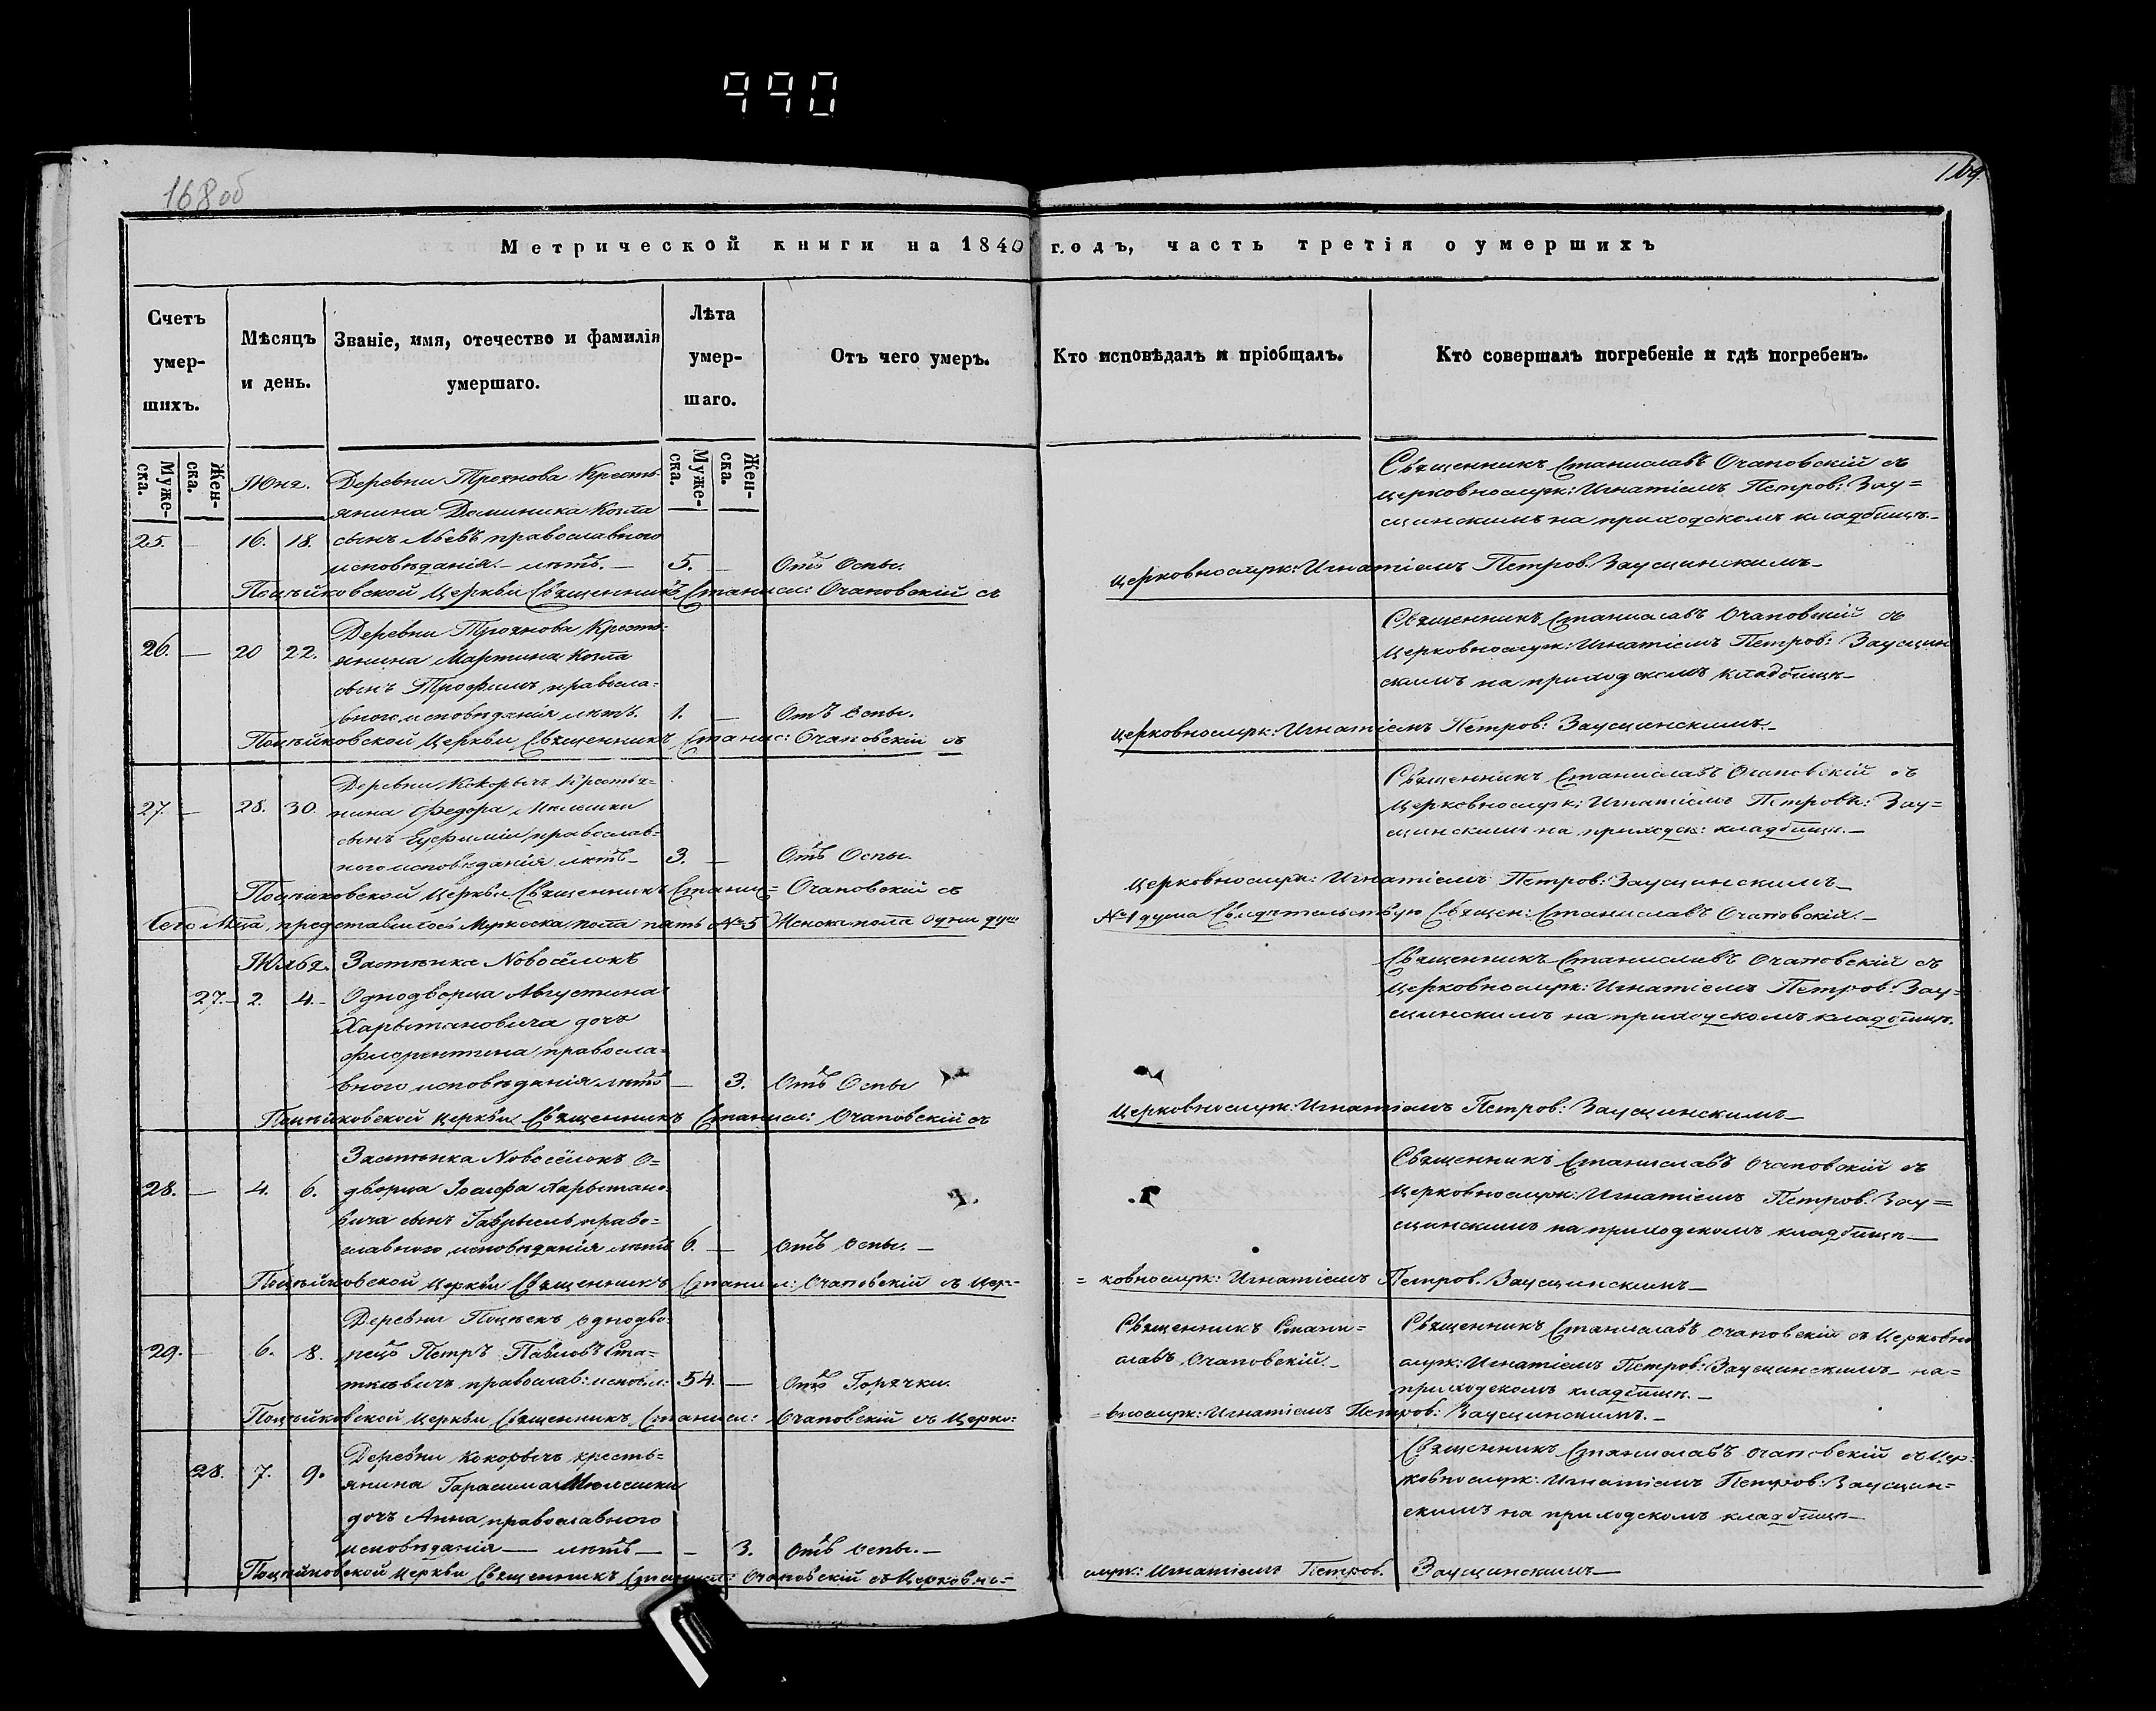 990
168 об
169.
Метрической книги на 1840 годъ, часть третія о умершихъ
Счетъ умер-шихъ.
Мѣсяцъ и день.
Званіе, имя, отечество и фамилія умершаго.
Лѣта умер-шаго.
Отъ чего умеръ.
Кто исповѣдалъ и пріобщалъ.
Кто совершалъ погребеніе и гдѣ погребенъ.
Муже-ска.
Жен-ска.
Муже-ска.
Жен-ска.
Июня.
Деревни Троянова Кресть-
янина Доминика Козла
25. — 16. 18. сынъ Львъ православного
исповѣданія.— лѣтъ.— 5. — Отъ Оспы.
Священникъ Станиславъ Очаповскій съ
церковнослуж: Игнатіемъ Петров: Зау=
сцинскимъ на приходскомъ кладбищѣ.—
Церкви Священникъ Станисл: Очаповскій съ
церковнослуж: Игнатіемъ Петров: Заусцинскимъ—
Деревни Троянова Кресть-
26. — 20 22. янина Мартина Козла
сынъ Трофимъ, правосла-
вного исповѣданія лѣтъ. 1. — Отъ Оспы.
Священникъ Станиславъ Очаповскій съ
Церковнослуж: Игнатіемъ Петров: Заусцин
скимъ на приходскомъ кладбищѣ—
Церкви Священникъ Станис: Очаповскій съ
церковнослуж: Игнатіемъ Петров: Заусцинскимъ.—
Деревни Кокорычъ Крестья=
27. — 28. 30. нина Федора
сынъ Евфимій, православ-
ного исповѣданія лѣтъ— 3. — Отъ Оспы.
Священникъ Станиславъ Очаповскій съ
Церковнослуж: Игнатіемъ Петровъ: Зау=
сцинскимъ на приходск: кладбищѣ.—
Церкви Священникъ Станис= Очаповскій съ
церковнослуж: Игнатіемъ Петров: Заусцинскимъ—
Сего Мца, представилось Мужеска пола пять №5 Женска пола одна душ
№1 душа Свидѣтельствую Священ: Станиславъ Очаповскій.—
Июля.
Застѣнка Новосёлокъ
27.— 2. 4.— Однодворца Августина
Харытановича дочь
Флорентина правосла=
вного исповѣданія лѣтъ — 3. Отъ Оспы
Священникъ Станиславъ Очаповскій съ
Церковнослуж: Игнатіемъ Петров: Зау=
сцинскимъ на приходскомъ кладбищѣ.
Церкви Священникъ Станисл: Очаповскій съ
церковнослуж: Игнатіемъ Петров: Заусцинскимъ—
Застѣнка Новосёлокъ О=
28. — 4. 6. дворца Іосифа Харытано-
вича сынъ Гаврыилъ, право=
славного исповѣданія лѣтъ 6. — Отъ Оспы.—
Священникъ Станиславъ Очаповскій съ
Церковнослуж: Игнатіемъ Петров. Зау=
сцинскимъ на приходскомъ кладбищѣ—
Церкви Священникъ Станисл: Очаповскій съ Цер-
= ковнослуж: Игнатіемъ Петров. Заусцинскимъ—
Деревни Поцѣекъ однодво-
29. — 6. 8. рецъ Петръ Павловъ Ста=
ткевичъ православ: исповѣ: 54. — Отъ Горячки.
Священникъ Стани=
славъ Очаповскій.—
Священникъ Станиславъ Очаповскій съ Церковно
служ: Игнатіемъ Петров: Заусцинскимъ на=
приходскомъ кладбищѣ.—
Церкви Священникъ Станисл: Очаповскій съ Церко:
=внослуж: Игнатіемъ Петров: Заусцинскимъ.—
Деревни Кокорычъ кресть=
28. 7. 9. янина Гарасима
дочь Анна православного
исповѣданія — лѣтъ — - 3. Отъ Оспы.—
Священникъ Станиславъ Очаповскій съ Цер-
ковнослуж: Игнатіемъ Петров: Заусцин=
скимъ на приходскомъ кладбищѣ—
Церкви Священникъ Очаповскій съ Церковно=
служ: Игнатіемъ Петров. Заусцинскимъ—